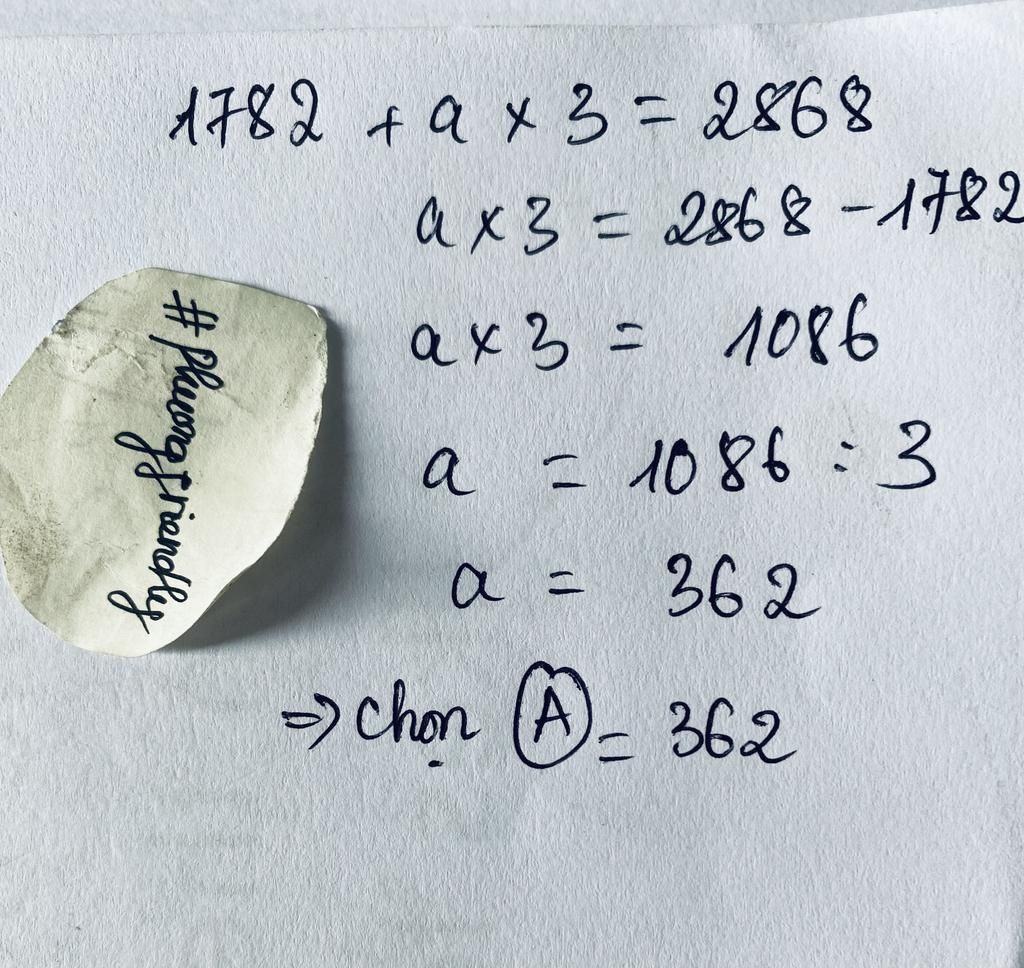 1782 + a × 3 = 2868
a × 3 = 2868 - 1782
a × 3 = 1086
a = 1086 : 3
a = 362
⇒ Chọn A = 362
#phuongfriendly